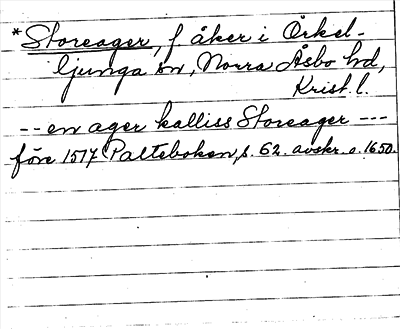 *Storeager, f åker i Örkel-
ljunga sn, Norra Åsbo hd,
Krist. l.
-- en ager kalliss Storeager ---
före 1517 Palteboken, s. 62. avskr. o. 1650.